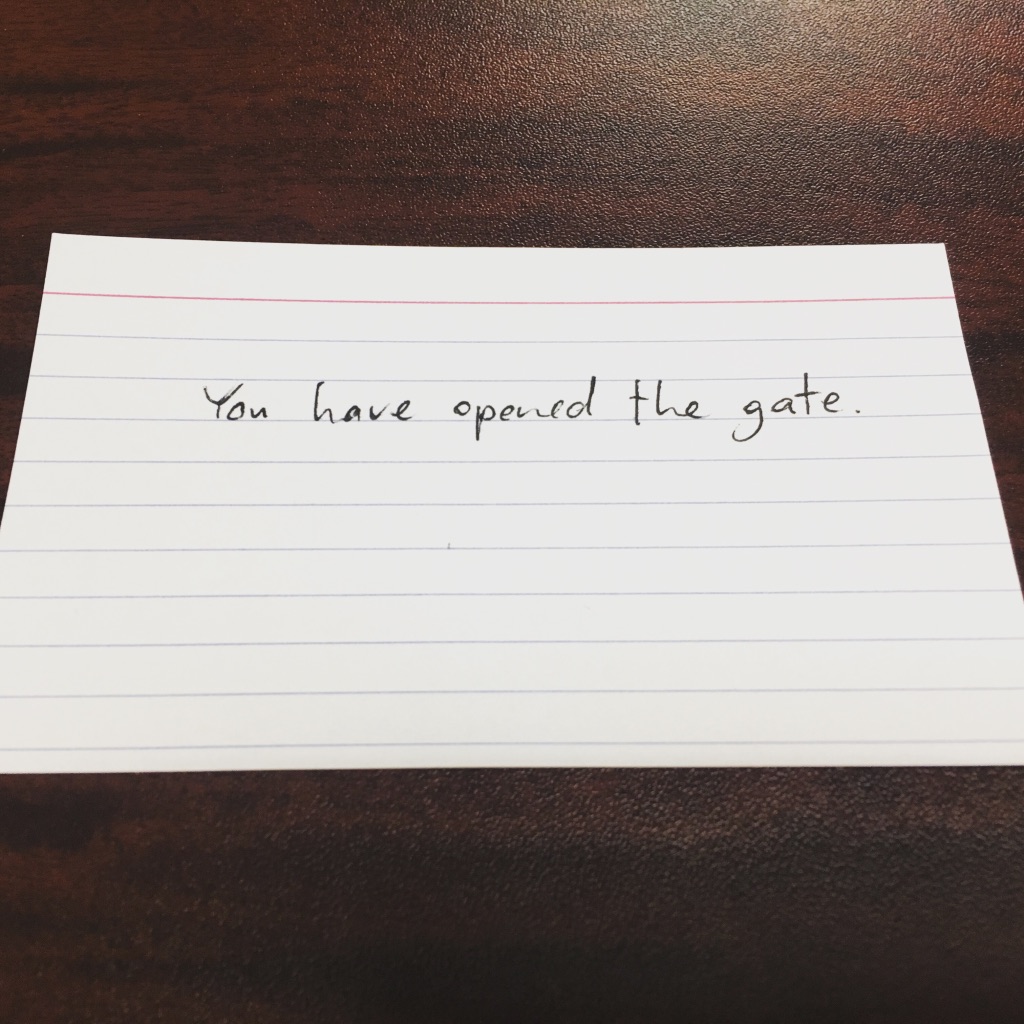 You have opened the gate.